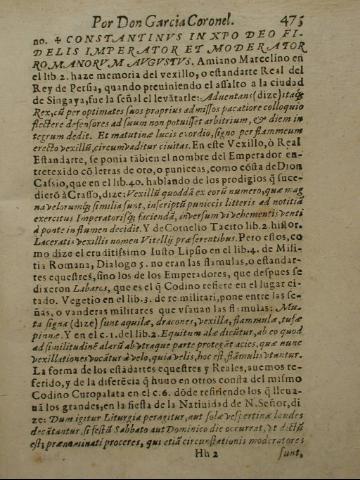 Por Don Garcia Coronel. 475
no. ✠ CONSTANTINVS IN XPO DEO FI-
DELIS IMPERATOR ET MODERATOR
ROMANORVM AVGVSTVS. Amiano Marcelino en
el lib 2. haze memoria del vexillo, o estandarte Real del
Rey de Persia, quando preuiniendo el assalto a la ciudad
de Singaya, fue la señal el leuãtarle: Aduentans (dize) itaq;
Rex, cũ per optimates suos proprius admissos pacatiore colloquio
flectere defensores ad suum non potuisset arbitrium, & diem in
tegrum dedit. Et matutinæ lucis exordio, signo per flammeum
erecto vexillũ, circumvaditur ciuitas. En este Vexillo, ò Real
Estandarte, se ponia tãbien el nombre del Emperador en-
tretexido cõ letras de oro, o puniceas, como cõsta de Dion
Cassio, que en el lib. 40. hablando de los prodigios q̃ suce-
dierõ à Crasso, dize: Vexillũ quoddã ex eorũ numero, quæ mag
na velorumq; similia sunt, inscriptũ puniceis litteris ad notitiã
exercitus Imperatorisq; faciendã, inversum vi vehementis venti
à ponte in flumen decidit. Y de Cornelio Tacito lib 2. histor.
Laceratis vexillis nomen Vitellij præferentibus. Pero estos, co-
mo dize el eruditissimo Iusto Lipsio en el lib. 4. de Mili-
tia Romana, Dialogo 5. no eran las flamulas, o estandar-
tes equestres, sino los de los Emperadores, que despues se
dixeron Labaros, que es el q̃ Codino refiere en el lugar ci-
tado. Vegetio en el lib. 3. de re militari, pone entre las se-
ñas, o vanderas militares que vsauan las flamulas: Mu-
ta signa (dize) sunt aquilæ, dracones, vexilla, flammulæ, tufæ
pinnæ. Y en el c. 1. del lib. 2. Equitum alæ dicũtur, ab eo quod
ad similitudinẽ alarũ ab vtraque parte protegãt acies, quæ nunc
vexillationes vocãtur à velo, quia velis, hoc est, flãmulis vtantur.
La forma de los estãdartes equestres y Reales, auemos re-
ferido, y de la diferẽcia q̃ huuo en otros consta del mismo
Codino Curopalata en el c. 6. dõde refiriendo los q̃ lleua-
uã los grandes, en la fiesta de la Natiuidad de N. Señor, di-
ze: Dum igitur Liturgia peragitur, aut solæ vespertinæ laudes
decãtantur, si festũ Sabbato aut Dominico die occurrat, vt dictũ
est, prænominati proceres, qui etiã circunstationis moderatores
Hh 2 sunt,